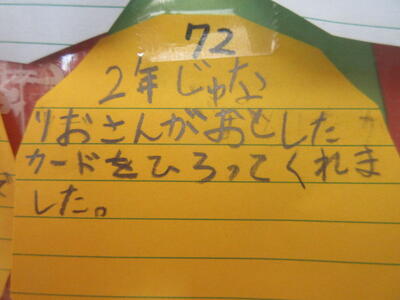 72
2年じゅな
りおさんがおとした
カードをひろってくれま
した。